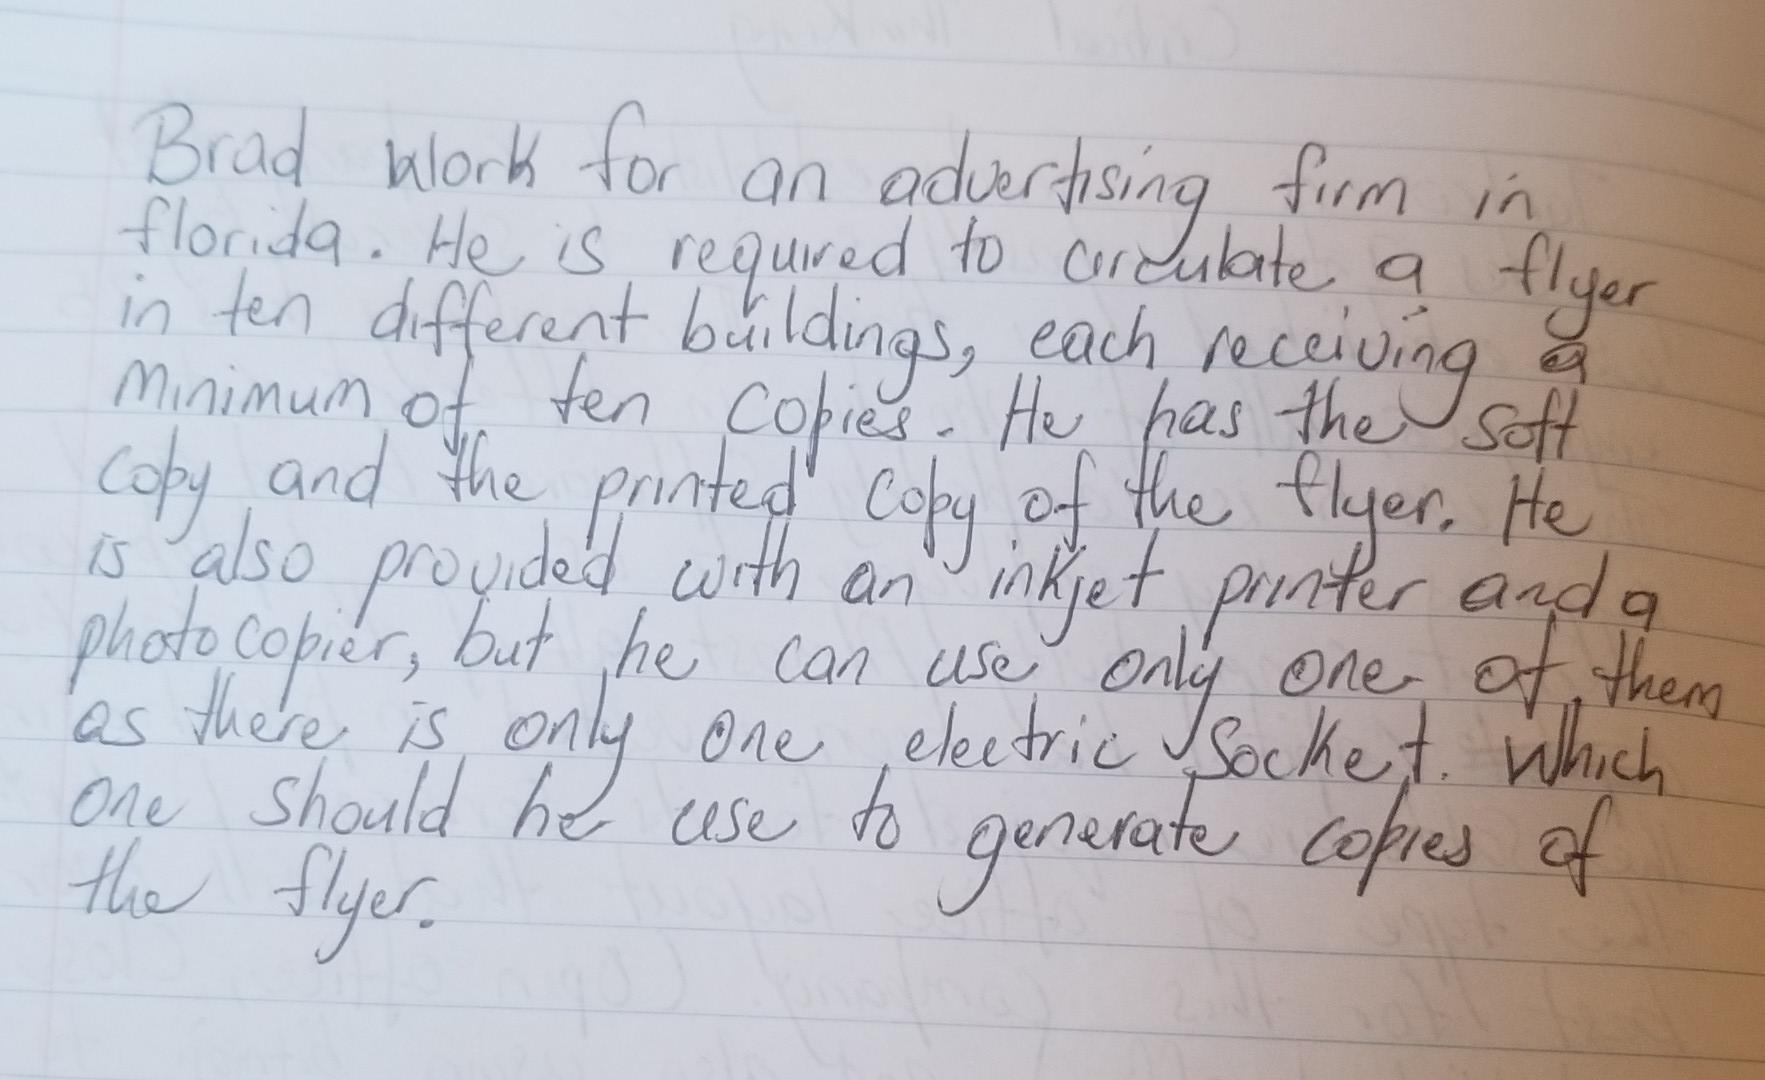 Brad work for an advertising firm in
florida. He is required to circulate a flyer
in ten different buildings, each receiving a
minimum of ten copies. He has the soft
copy and the printed copy of the flyer. He
is also provided with an inkjet printer and a
photocopier, but he can use only one of them
as there is only one electric socket. Which
one should he use to generate copies of
the flyer.